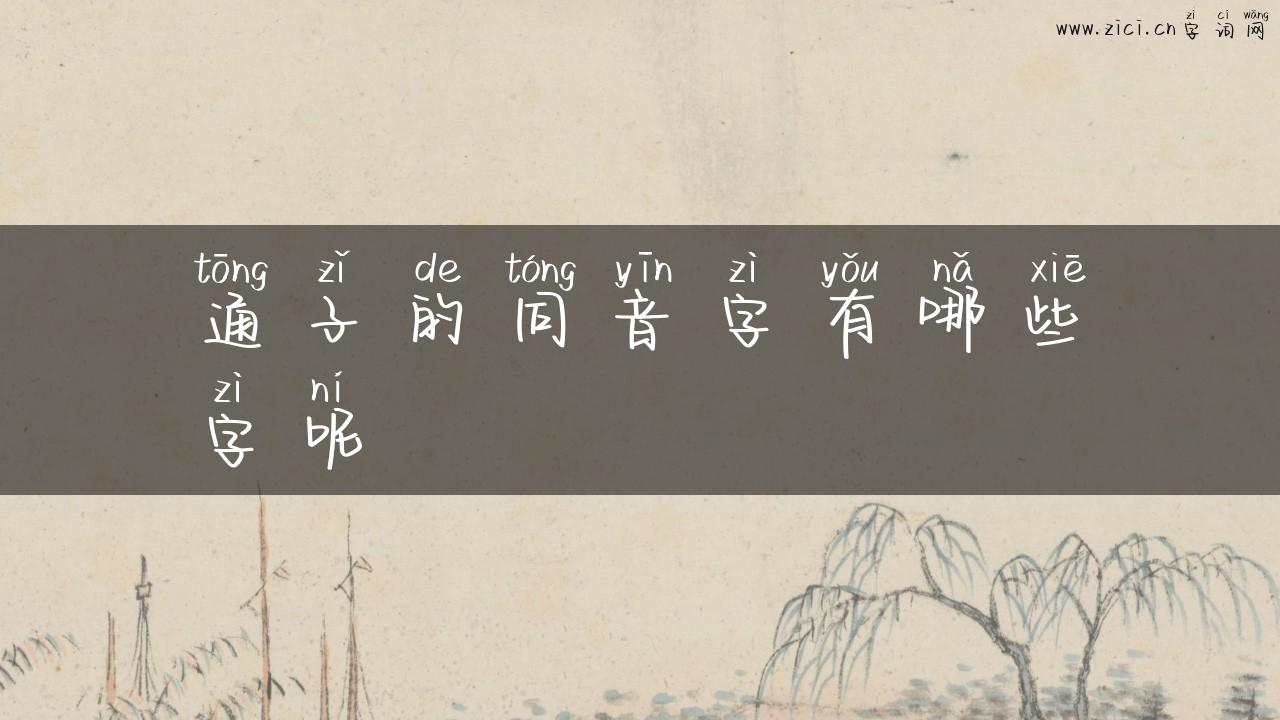 zì cí wǎng
www.zici.cn 字 词 网
tōng zǐ de tóng yīn zì yǒu nǎ xiē
通 子 的 同 音 字 有 哪 些
zì ní
字 呢